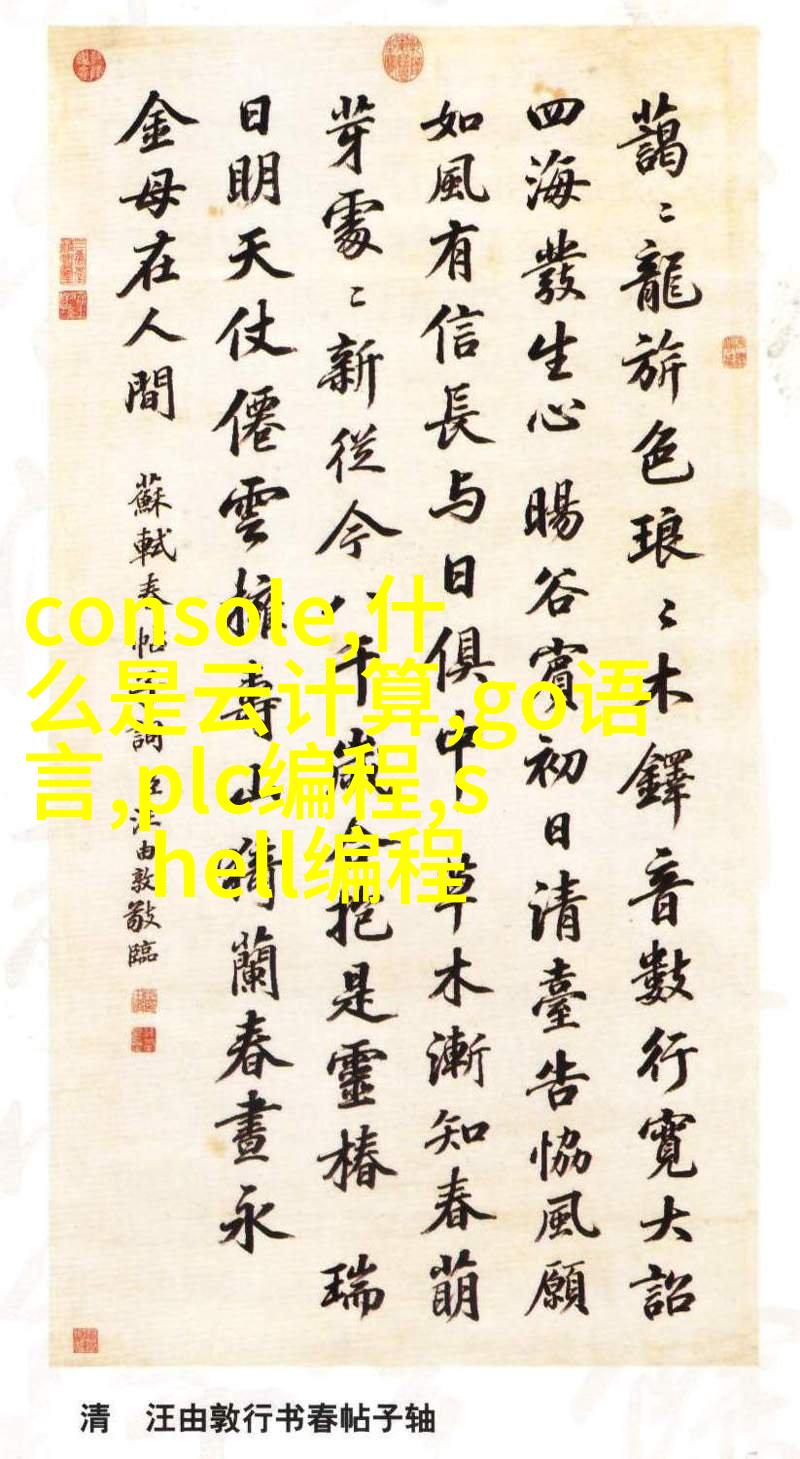 藹〻龍旂色琅〻木鐸音數行寬大詔
四海發生心 暘谷賓初日清臺告恊風願
如風有信長与日俱中 草木漸知春萌
芽處〻新從今八千歲合抱是靈椿 瑞
日明天仗僊雲擁壽山猗蘭春晝永
金母在人間
蘇軾春帖子詞 臣汪由敦敬臨
console,什
么是云计算,go语
言,plc编程,s
hell编程
清 汪由敦行书春帖子轴